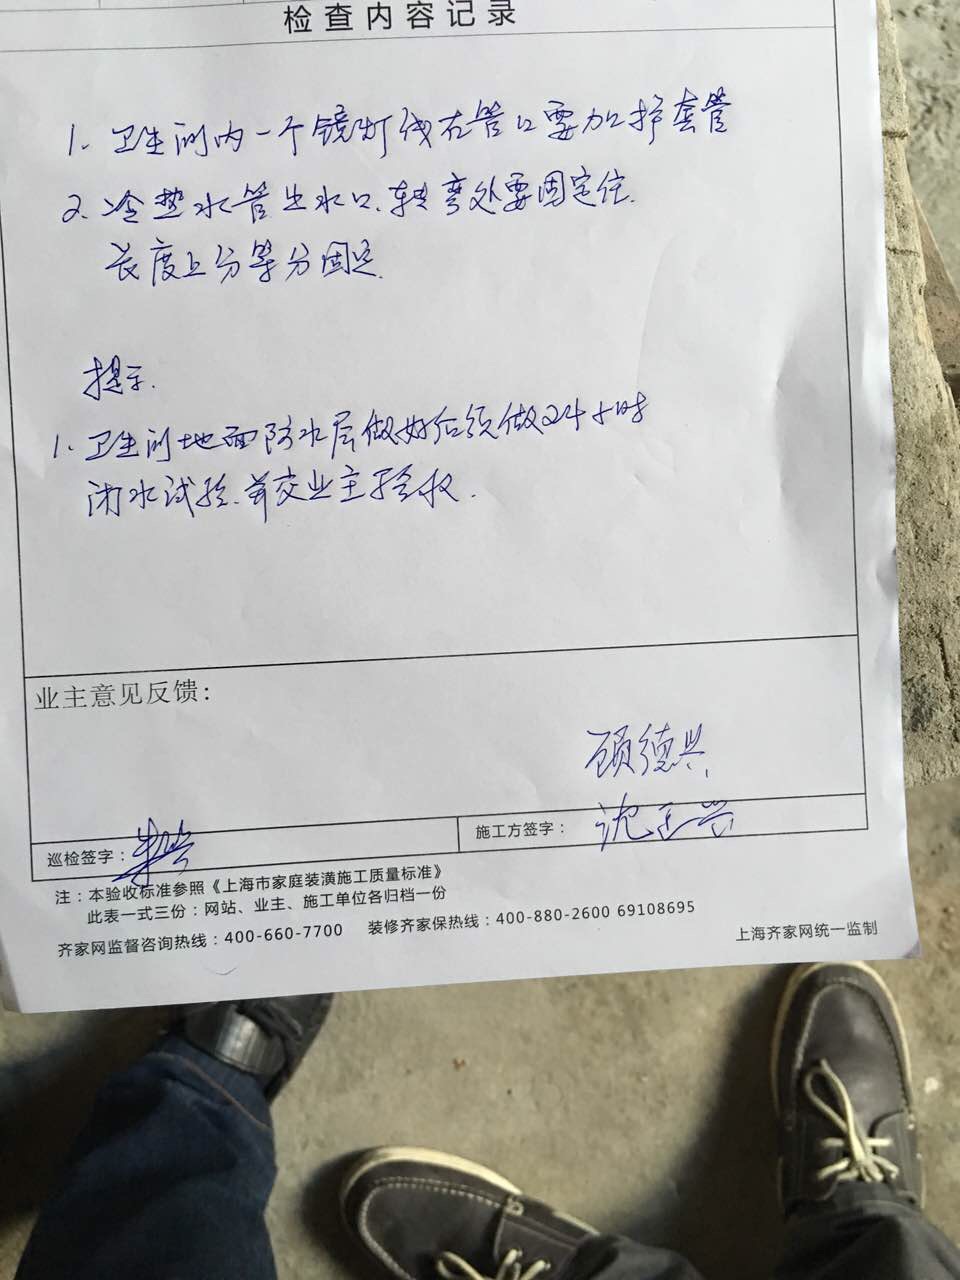 检查内容记录
1. 卫生间内一个镜灯线在管口要加护套管
2. 冷垫水管出水口、转弯处要固定住.
长度上分等分固定
提示.
1. 卫生间地面防水层做好后须做24小时
闭水试验.并交业主验收.
业主意见反馈:
顾德兴
巡检签字:
施工方签字: 沈正兴
注:本验收标准参照《上海市家庭装潢施工质量标准》
此表一式三份:网站、业主、施工单位各归档一份
齐家网监督咨询热线:400-660-7700 装修齐家保热线:400-880-2600 69108695
上海齐家网统一监制